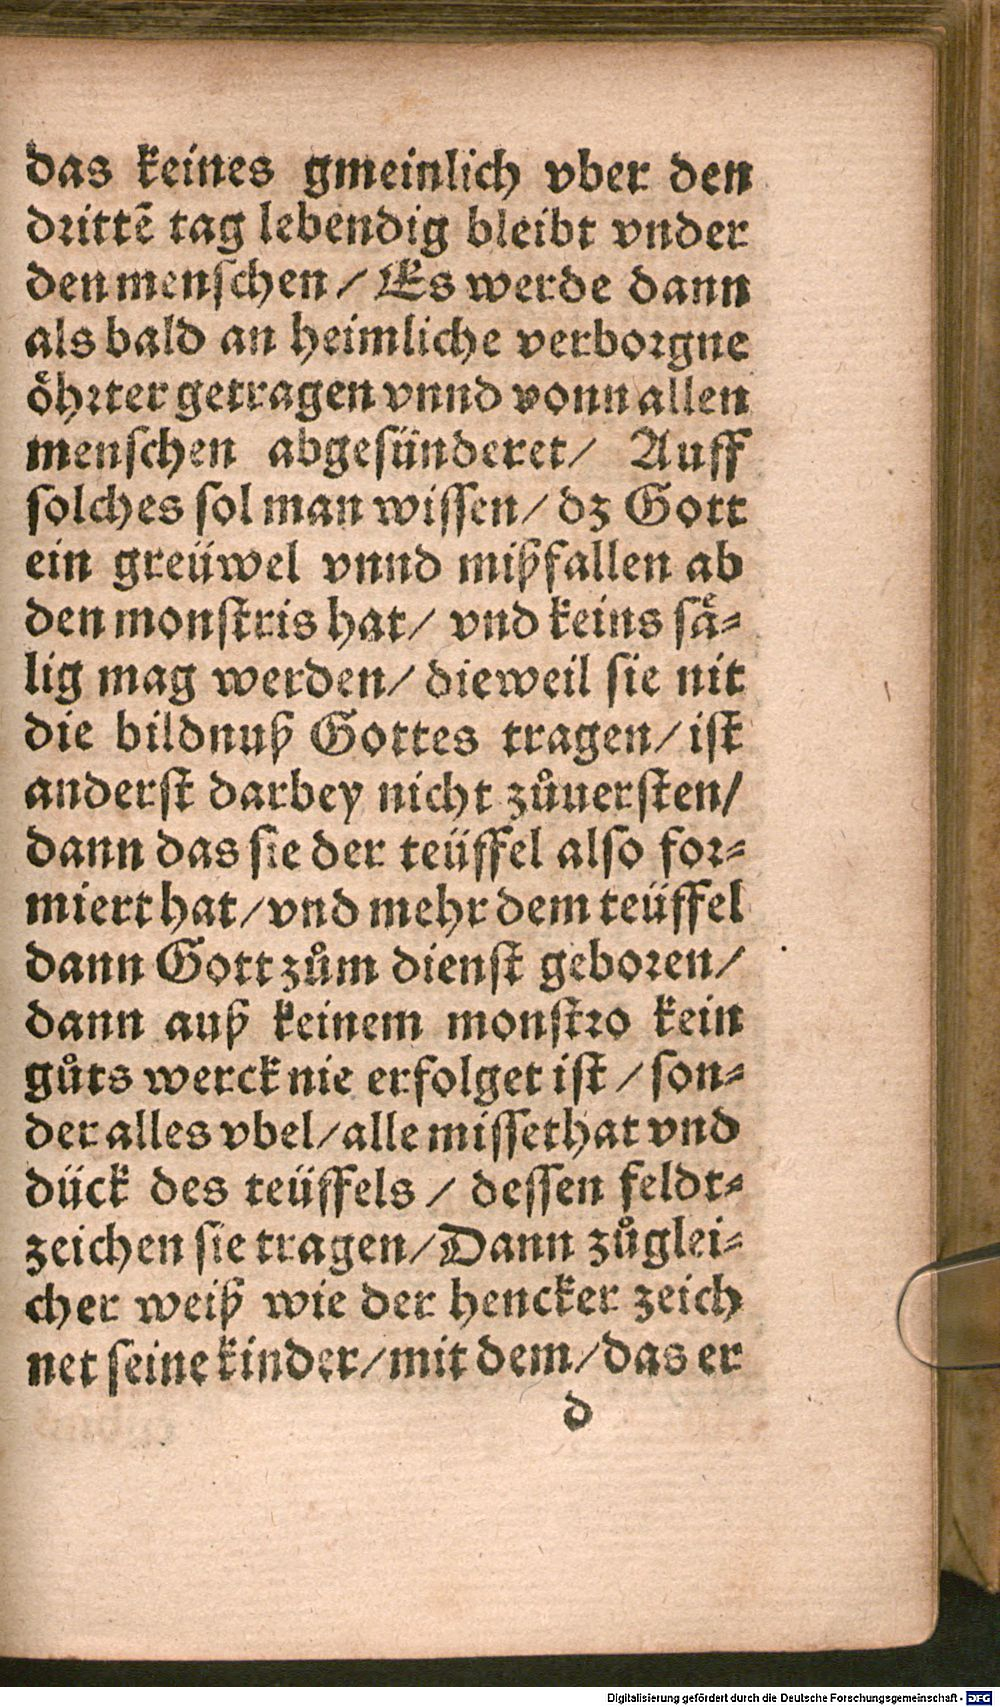 das keines gmeinlich vber den
drittẽ tag lebendig bleibt vnder
den menschen / Es werde dann
als bald an heimliche verborgne
oͤhrter getragen vnnd vonn allen
menschen abgesünderet / Auff
solches sol man wissen / dz Gott
ein greüwel vnnd mißfallen ab
den monstris hat / vnd keins saͤ-
lig mag werden / dieweil sie nit
die bildnuß Gottes tragen / ist
anderst darbey nicht zůuersten /
dann das sie der teüffel also for-
miert hat / vnd mehr dem teüffel
dann Gott zům dienst geboren /
dann auß keinem monstro kein
gůts werck nie erfolget ist / son-
der alles vbel / alle missethat vnd
dück des teüffels / dessen feldt-
zeichen sie tragen / Dann zůglei-
cher weiß wie der hencker zeich
net seine kinder / mit dem / das er
d
Digitalisierung gefördert durch die Deutsche Forschungsgemeinschaft - DFG